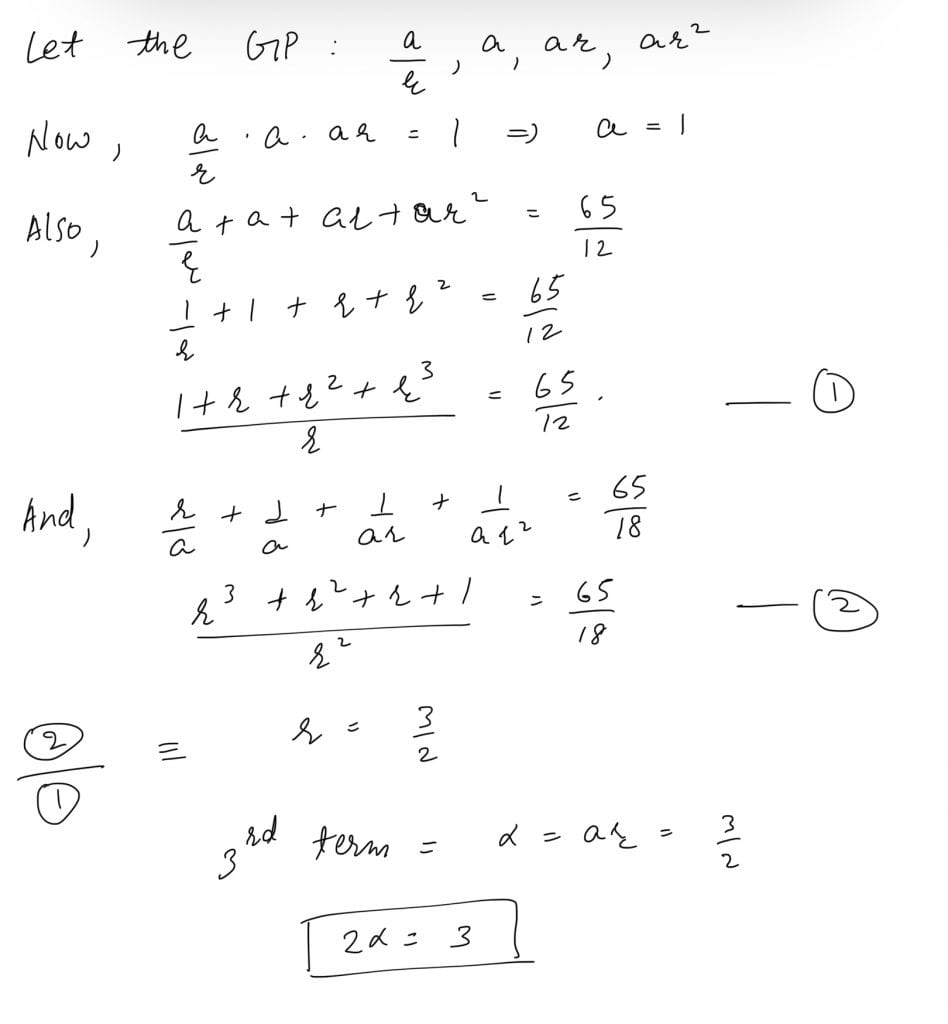 Let the GP : a/r , a, ar, ar²
Now, a/r · a · ar = 1 ⇒ a = 1
Also, a/r + a + ar + ar² = 65/12
1/r + 1 + r + r² = 65/12
(1 + r + r² + r³)/r = 65/12 . — ①
And, r/a + 1/a + 1/ar + 1/ar² = 65/18
(r³ + r² + r + 1)/r² = 65/18 — ②
②/① ≡ r = 3/2
3rd term = α = ar = 3/2
2α = 3